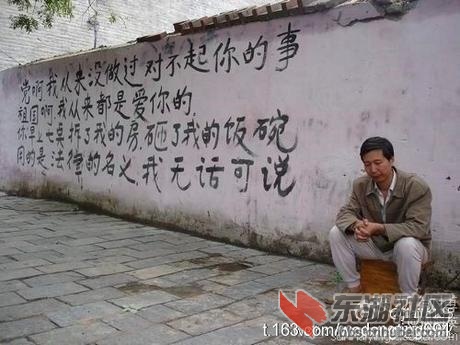 党啊,我从来没做过对不起你的事
祖国啊,我从来都是爱你的,
你早上七点拆了我的房,砸了我的饭碗
用的是法律的名义,我无话可说
东湖社区